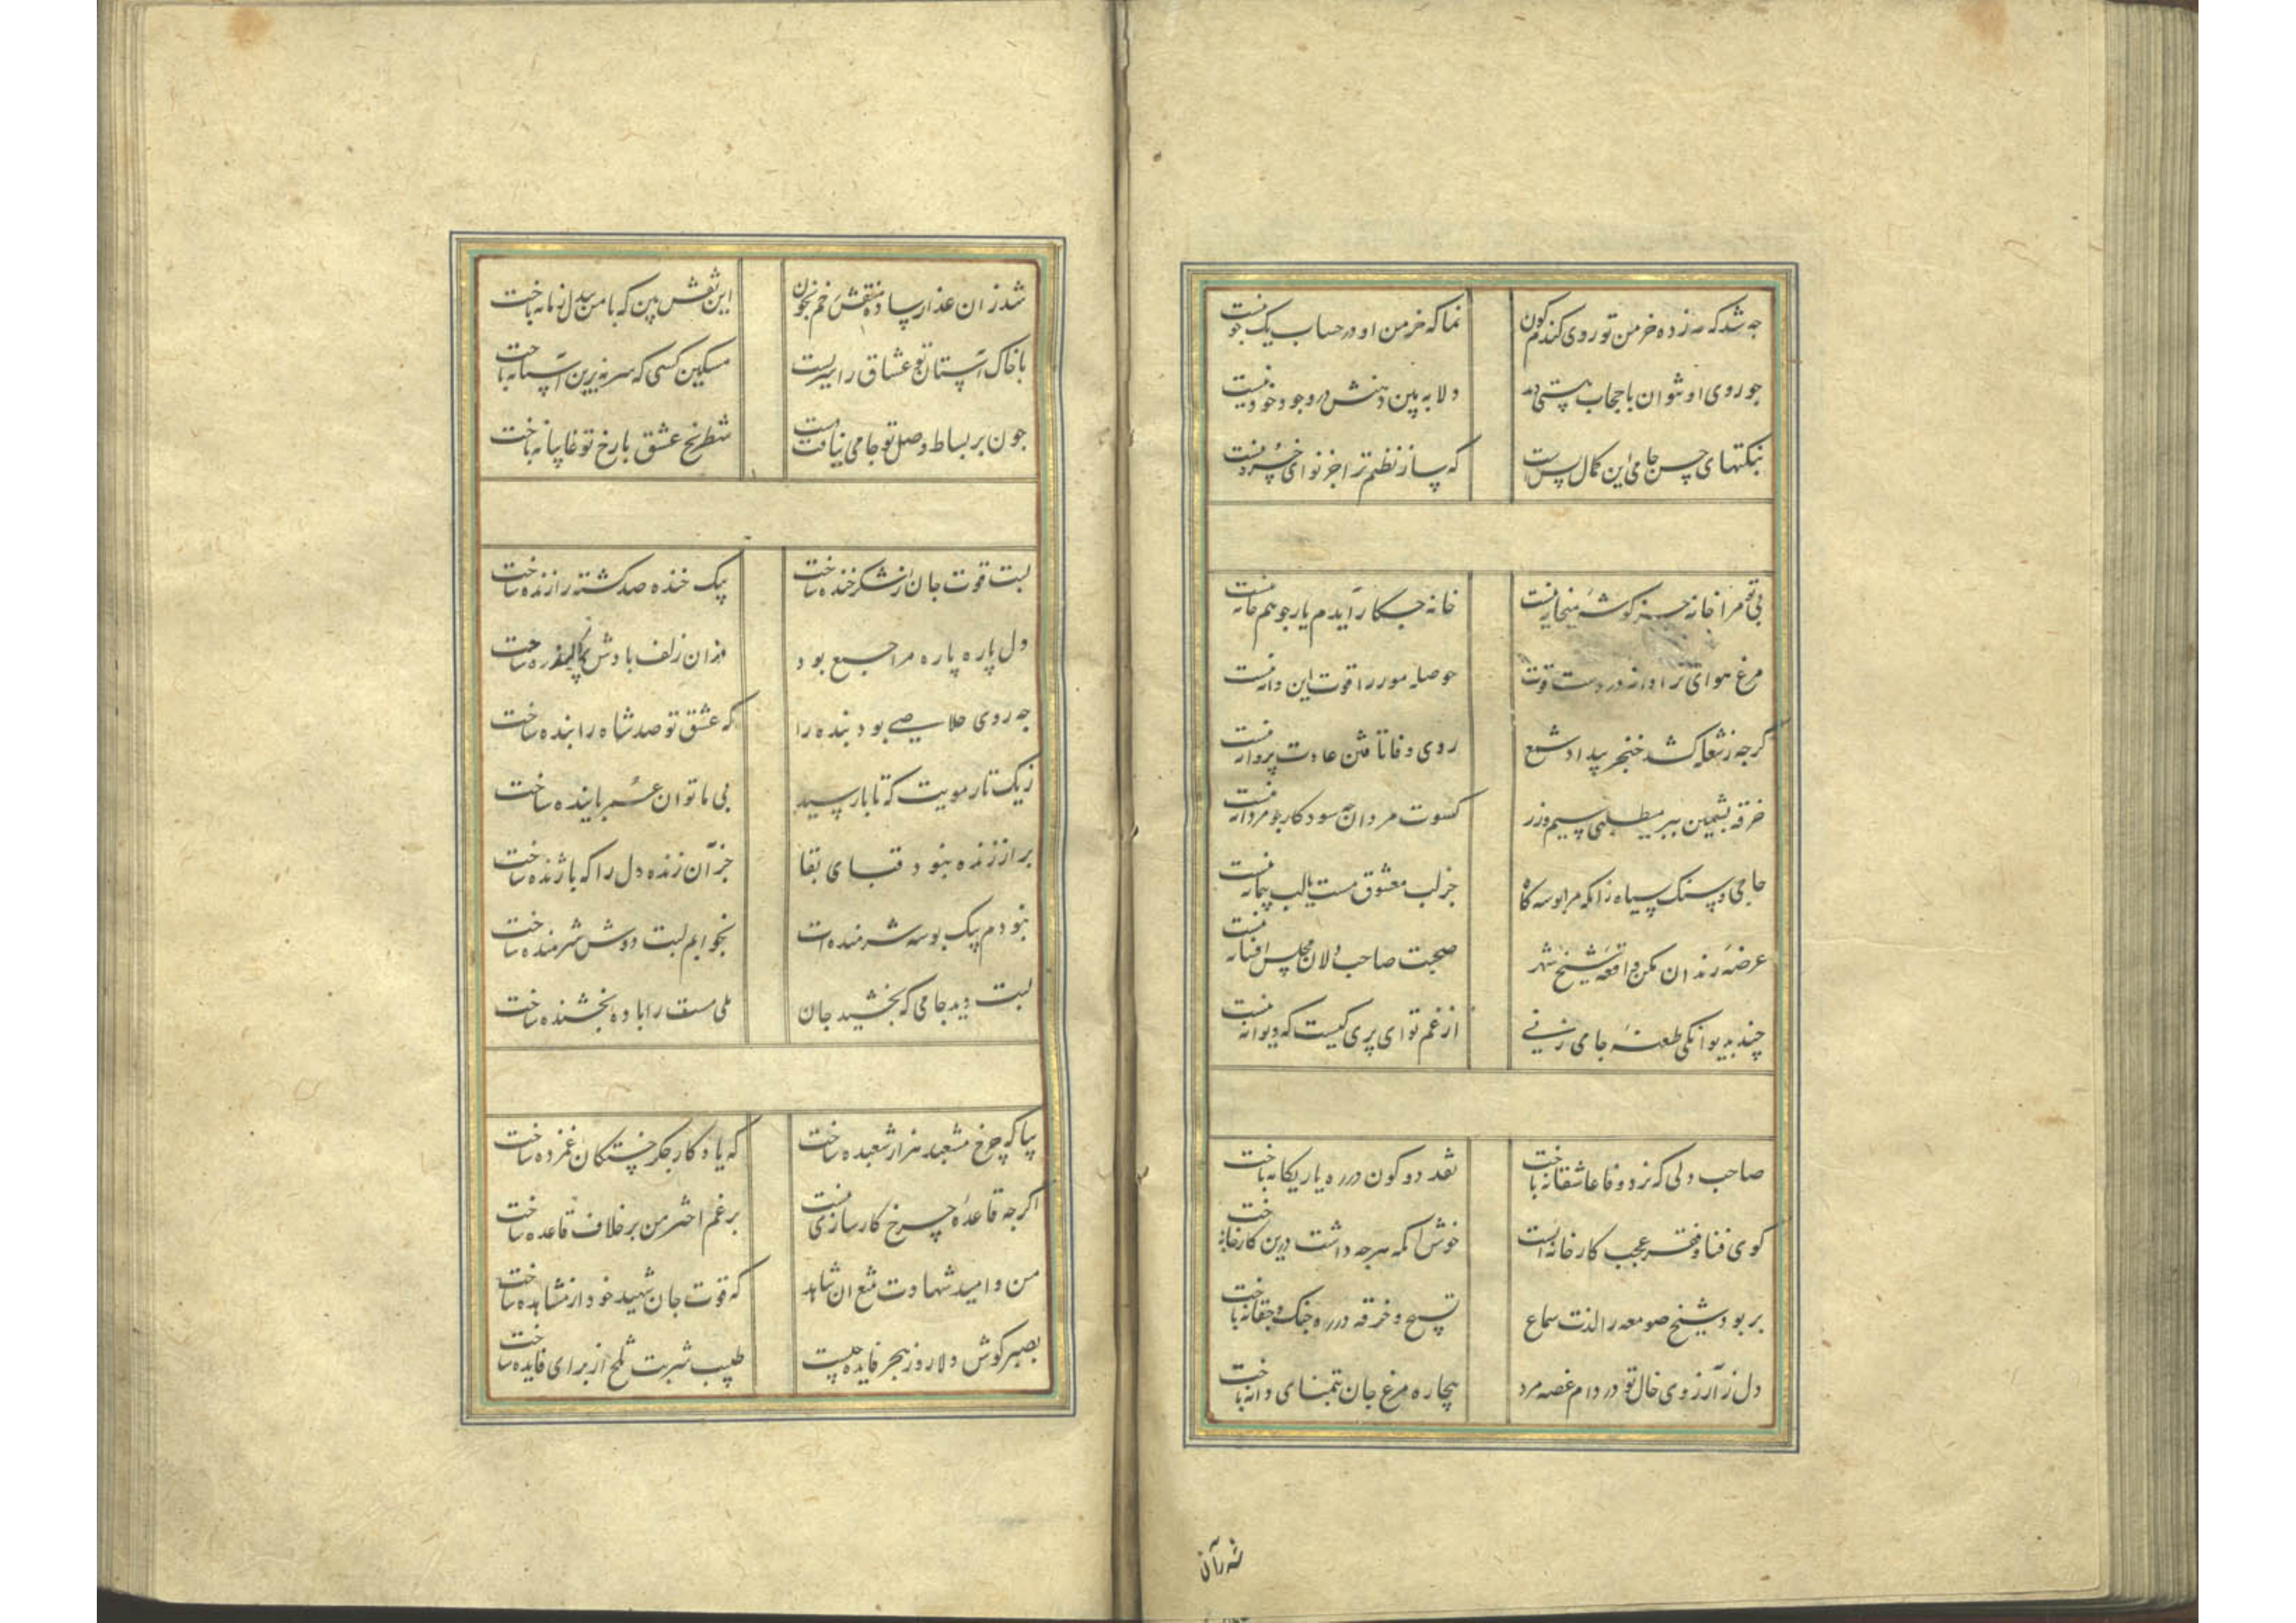 چه شد که مه زده خرمن تو روی گندم گون
نما که خرمن او در حساب یک جو نیست
چو روی او نتوان با حجاب هستی دید
دلا به بین دهنش در وجود خود نیست
بنکتهای حسن جامی این کمال بس است
که ساز نظم ترا جز نوای خسرو نیست
بی تو مرا خانه جز گوشه میخانه نیست
خانه چکار آیدم یار چو هم خانه نیست
مرغ هوای ترا دانه در دست قوت
حوصله مور را قوت این دانه نیست
گرچه ز شعله کشد خنجر بیداد شمع
روی وفا تافتن عادت پروانه نیست
خرقه پشمین ببر میطلبی سیم و زر
کسوت مردان چه سود کار چو مردانه نیست
جامی و سنگ سیاه زانکه مرا بوسه گاه
جز لب معشوق مست یا لب پیمانه نیست
عرضه رندان مکن واقعه شیخ شهر
صحبت صاحب دلان مجلس افسانه نیست
چند بدیوانگی طعنه جامی زنی
از غم تو ای پری کیست که دیوانه نیست
صاحب دلی که نرد وفا عاشقانه باخت
نقد دو کون در ره یار یگانه باخت
کوی فنا و فقر عجب کارخانه ایست
خوش آنکه هرچه داشت درین کارخانه باخت
بربود شیخ صومعه را لذت سماع
تسبیح و خرقه در ره چنگ و چغانه باخت
دل ز آرزوی خال تو در دام غصه مرد
بیچاره مرغ جان بتمنای دانه باخت
شد زان عذار ساده منقش رخم بخون
این نقش بین که با من بیدل زمانه باخت
با خاک آستان تو عشاق را سریست
مسکین کسی که سر نه برین آستانه باخت
چون بر بساط وصل تو جامی نیافت دست
شطرنج عشق با رخ تو غایبانه باخت
لبت قوت جان از شکر خنده ساخت
بیک خنده صد کشته را زنده ساخت
دل پاره پاره مرا جمع بود
وزان زلف بادش پراکنده ساخت
چه روی خلاصی بود بنده را
که عشق تو صد شاه را بنده ساخت
ز یک تار مویت که تا پا رسید
بی ما توان عمر پاینده ساخت
برازنده نبود قبای بقا
جز آن زنده دل را که با ژنده ساخت
نبودم بیک بوسه شرمنده ات
بخوابم لبت دوش شرمنده ساخت
لبت دید جامی که بخشید جان
بلی مست را باده بخشنده ساخت
بیا که چرخ مشعبد هزار شعبده ساخت
که یادگار جگر خستگان غمزده ساخت
اگرچه قاعده چرخ کارسازی نیست
برغم اختر من بر خلاف قاعده ساخت
من و امید شهادت بتیغ آن شاهد
که قوت جان شهید خود از مشاهده ساخت
بصبر کوش دلا روز هجر فایده چیست
طبیب شربت تلخ از برای فایده ساخت
شد زان